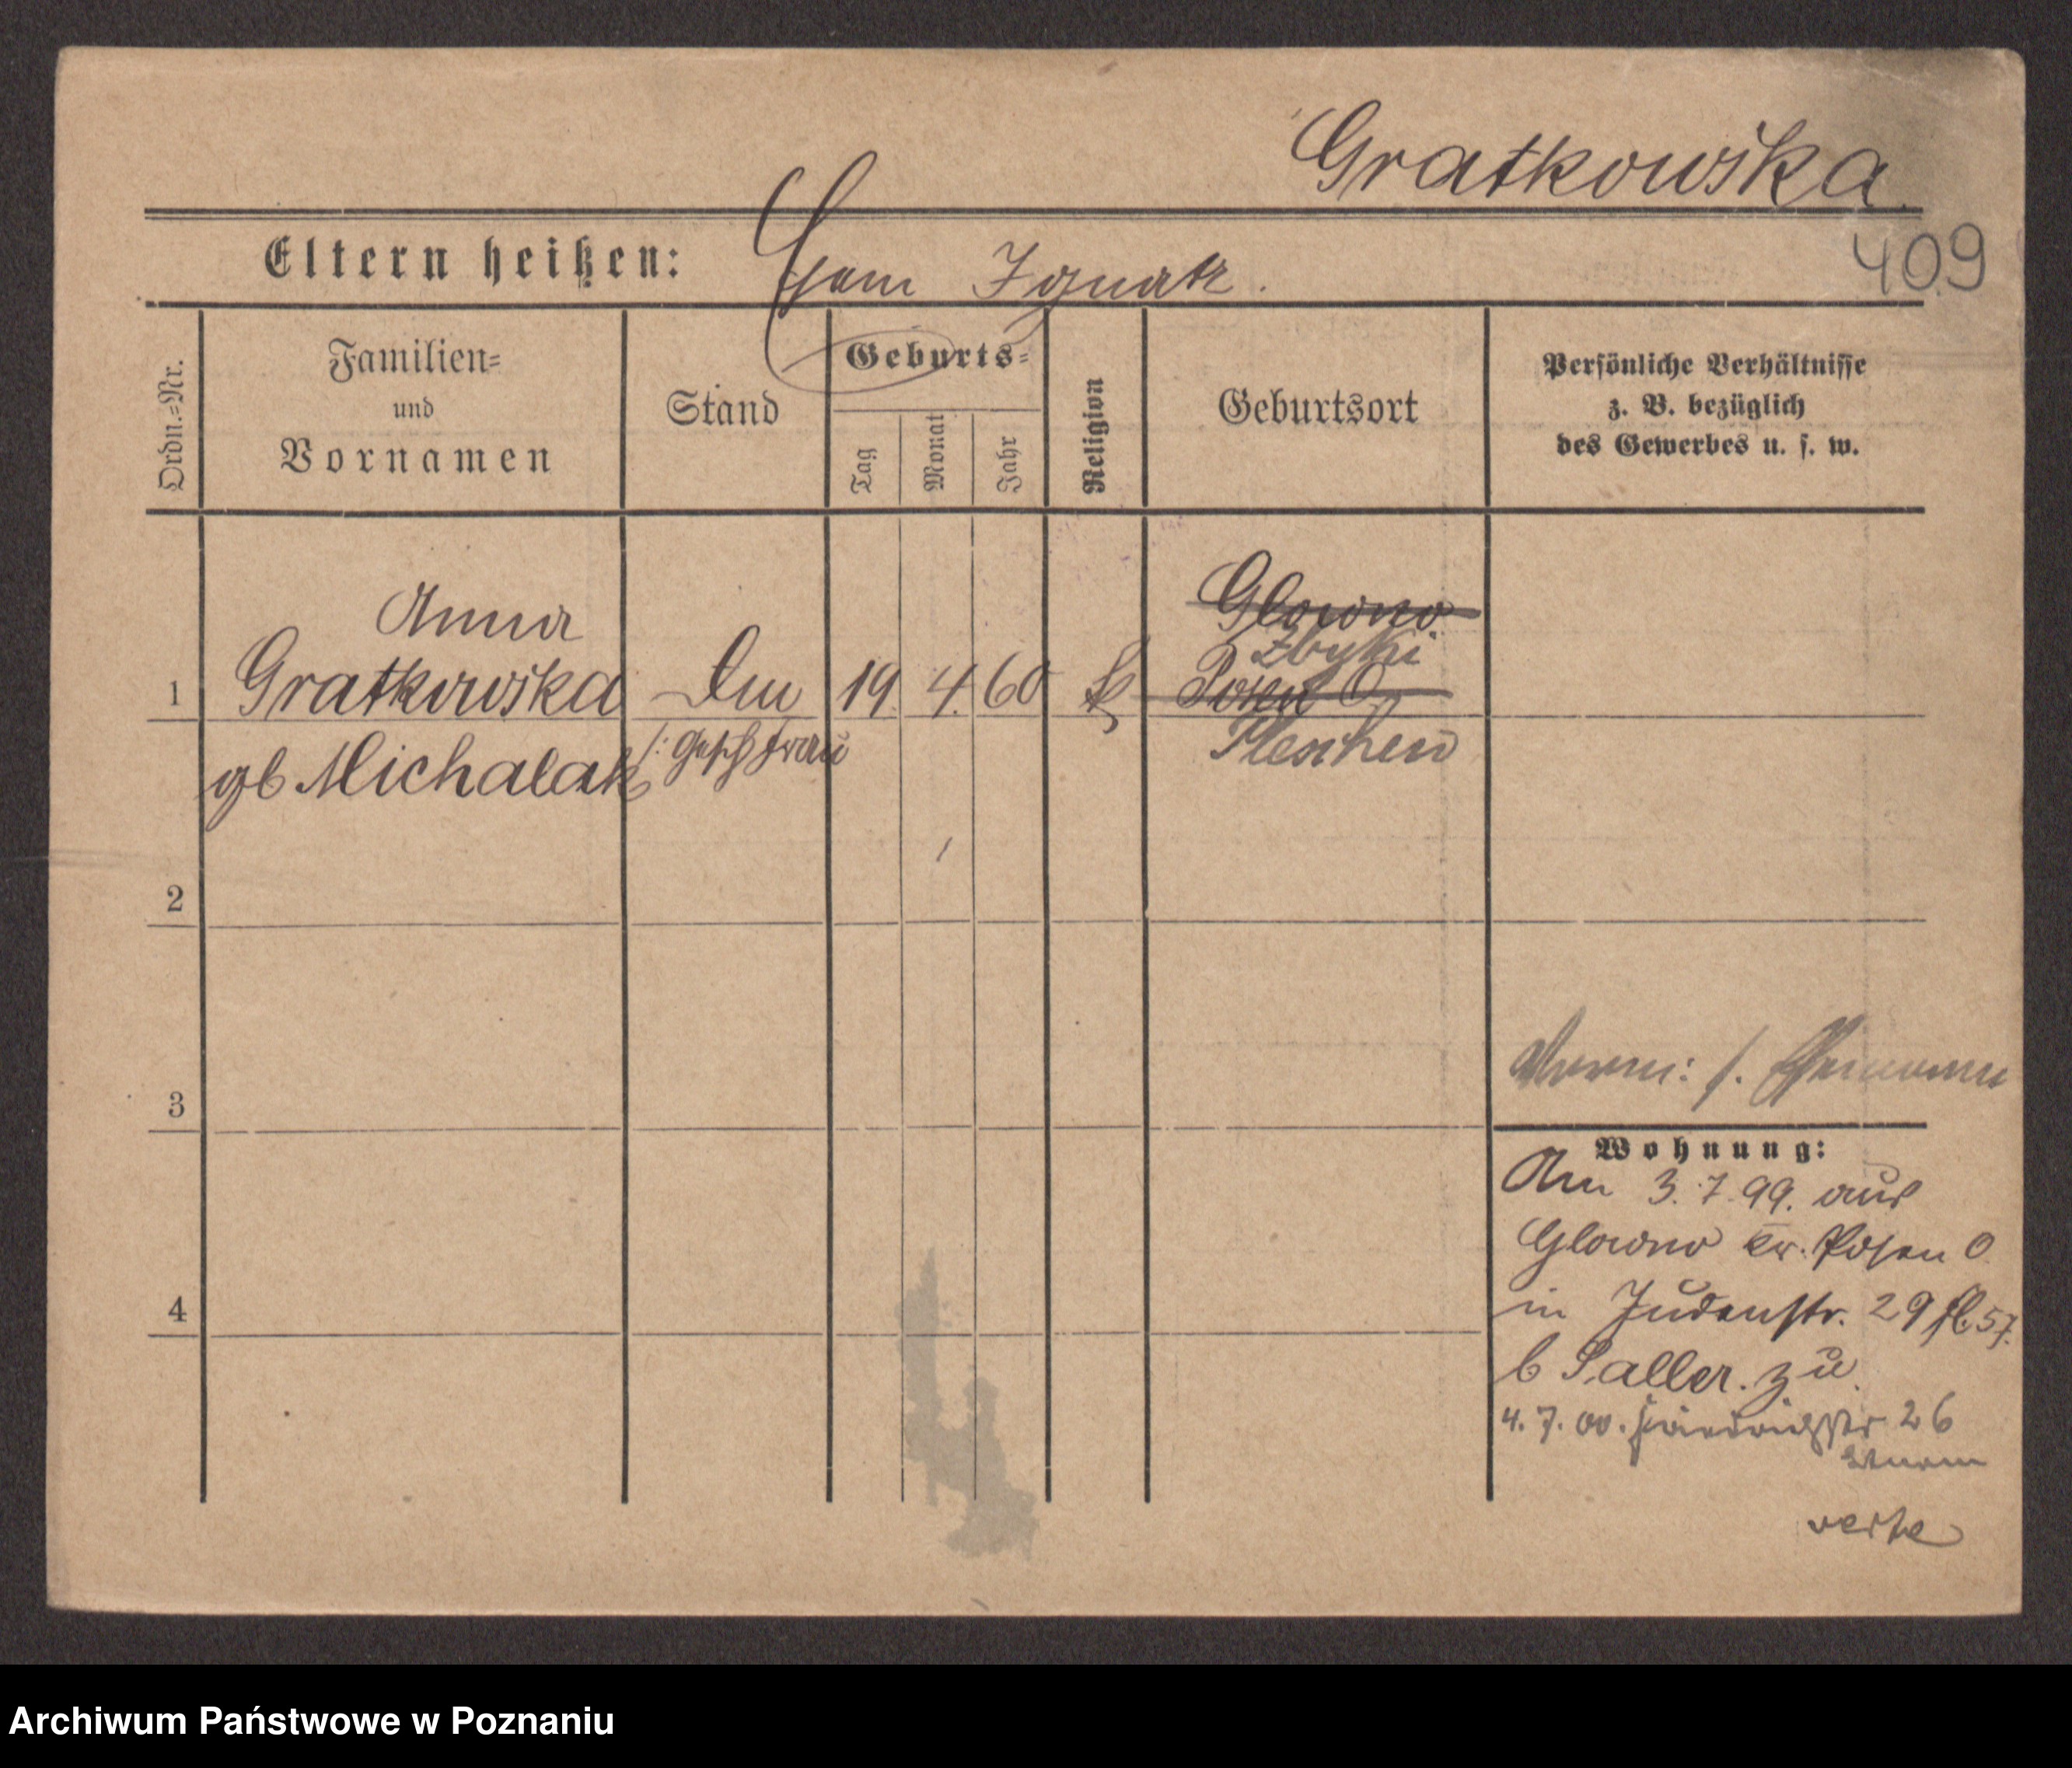 Gratkowska.
409
Eltern heißen: Gem Ignatz.
Ordn.=Nr.
Familien=
und
Vornamen
Stand
Geburts=
Tag
Monat
Jahr
Religion
Geburtsort
Persönliche Verhältnisse
z. B. bezüglich
des Gewerbes u. s. w.
Anna
Glowno
Zbyki
1 Gratkowska 19. 4. 60 k Posen O
gb Michalak /: Gesch frau
Pleschen
2
3
4
Wohnung:
Am 3. 7. 99. aus
Glowno Kr. Posen O.
in Judenstr. 29 fl. 57.
b Saller. zu.
4. 7. 00. Friedrichstr 26
verte
Archiwum Państwowe w Poznaniu